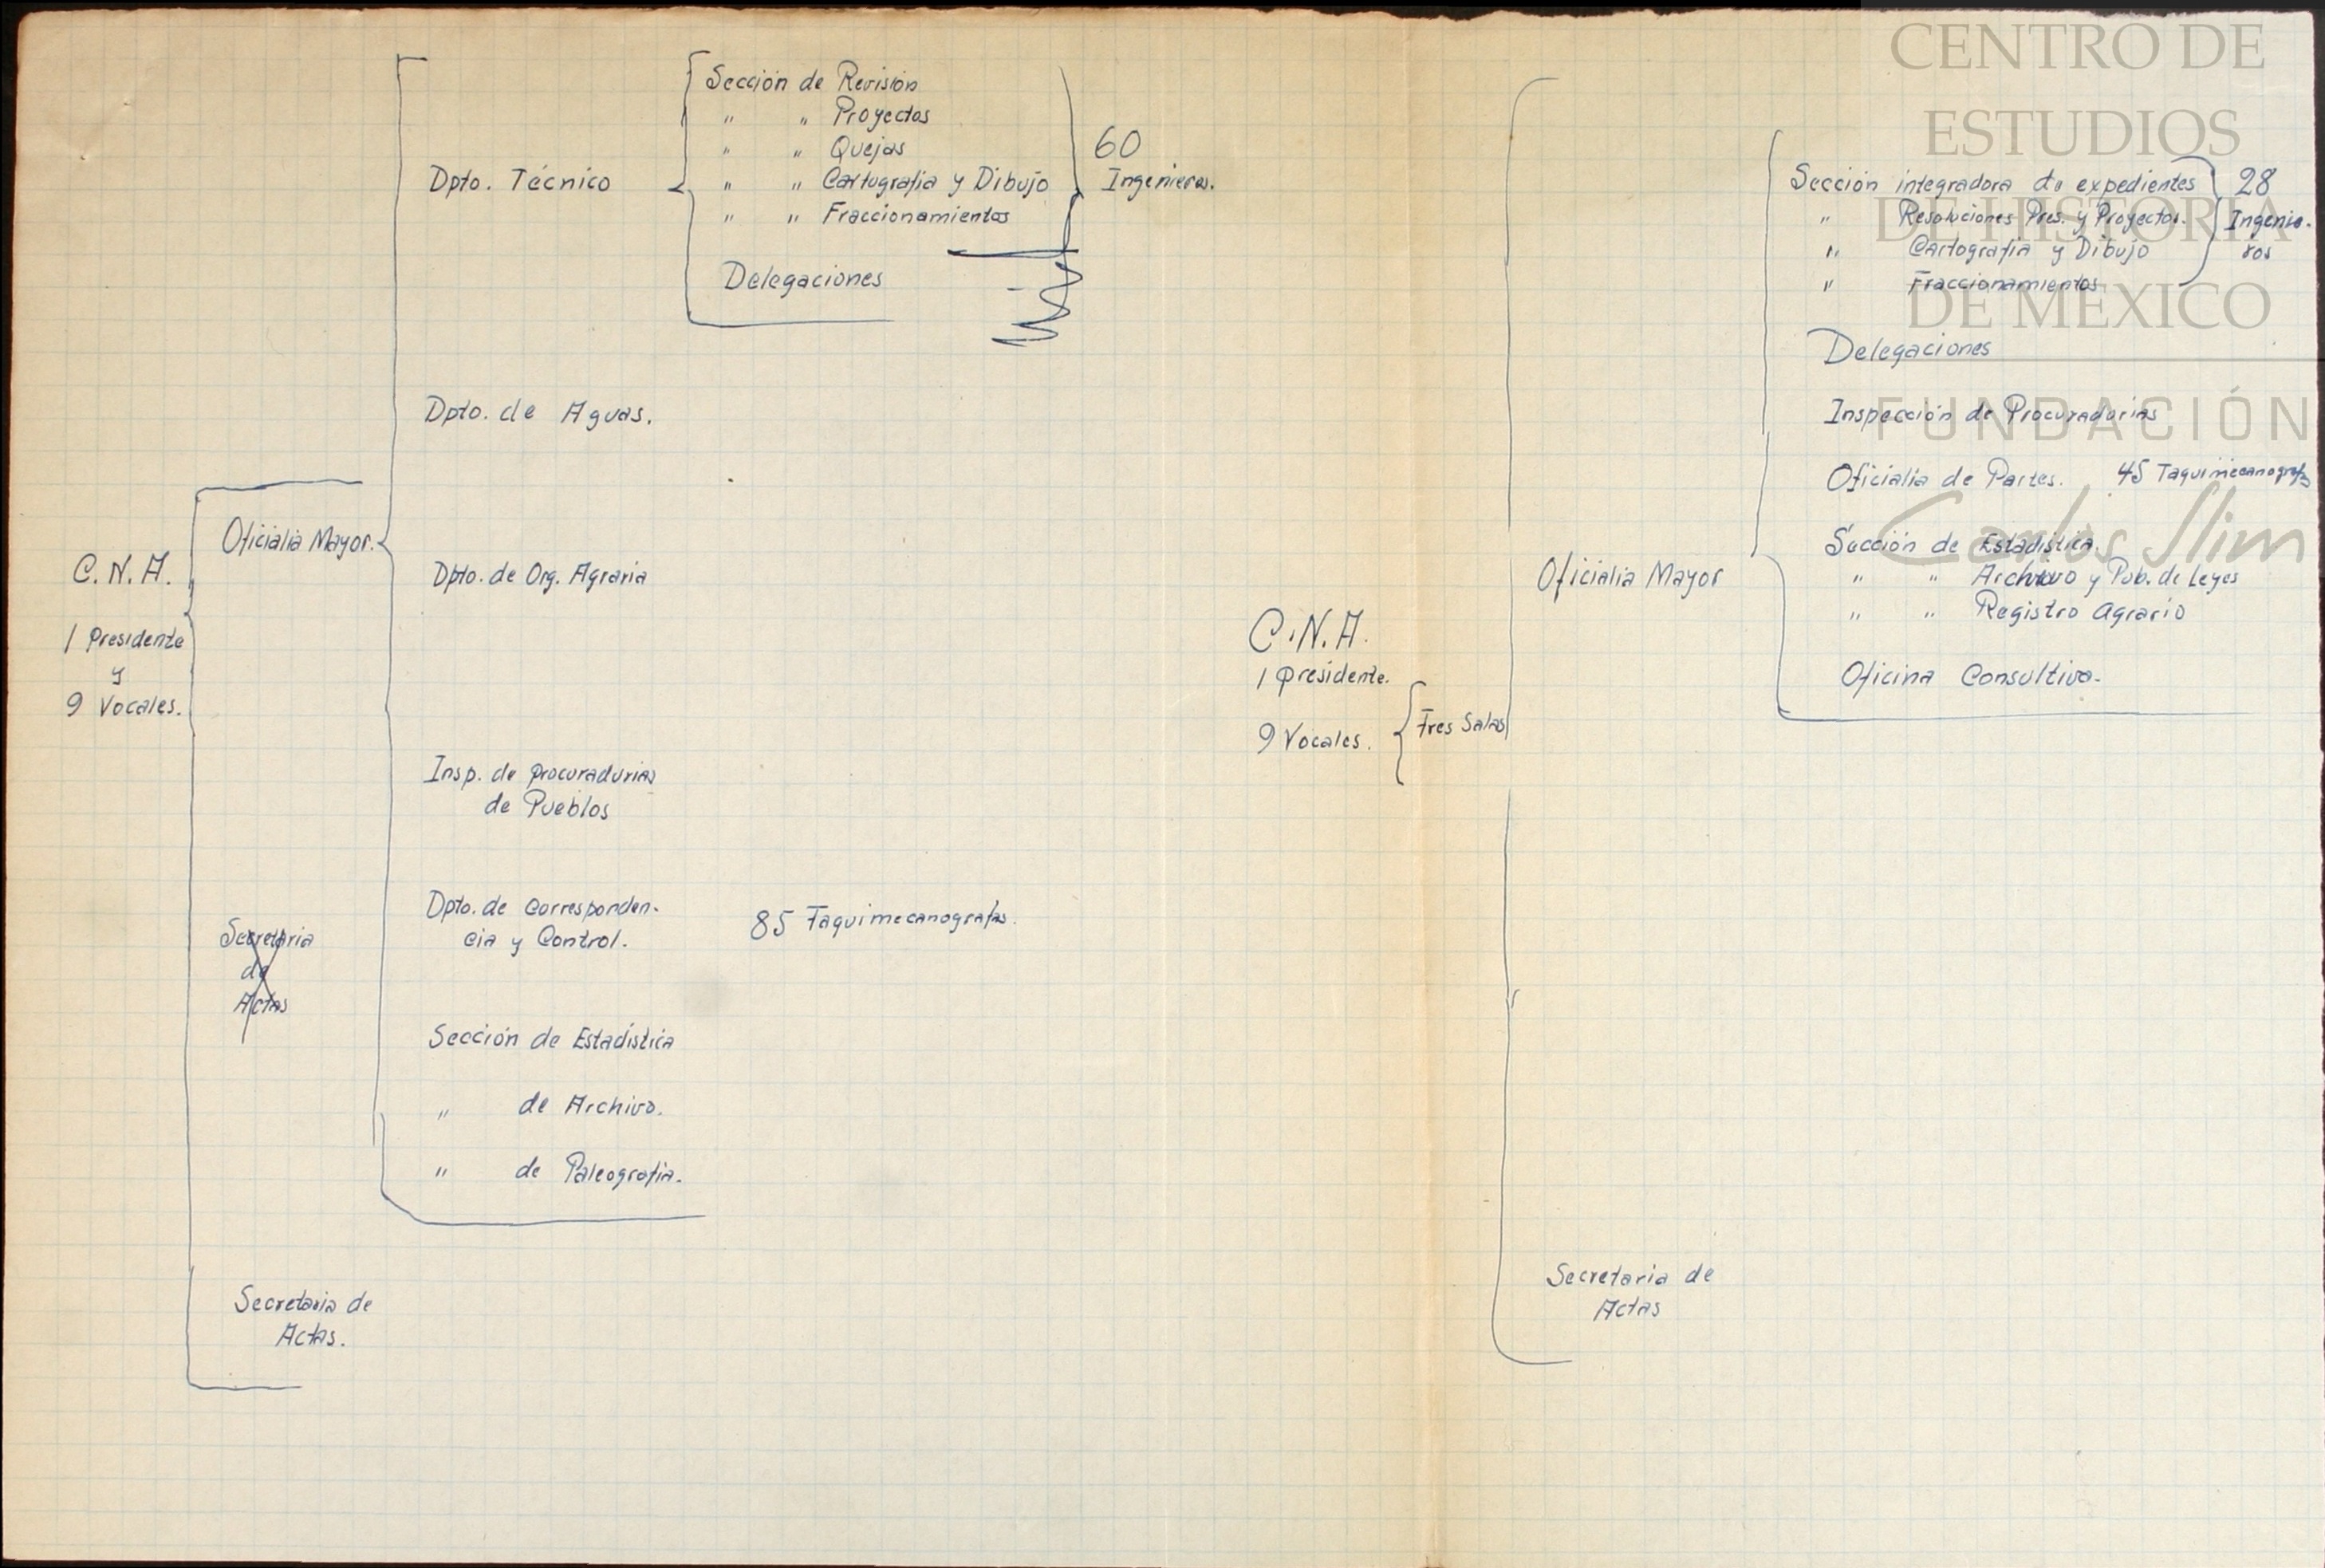 Sección de Revisión
" " Proyectos
" " Quejas
Dpto. Técnico " " Cartografia y Dibujo
" " Fraccionamientos
60
Ingenieros.
Delegaciones
Dpto. de Aguas.
Oficialia Mayor.
C.N.A.
1 Presidente
y
9 Vocales.
Dpto. de Org. Agraria
Insp. de procuradurias
de Pueblos
Dpto. de Corresponden-
cia y Control.
85 Taquimecanografas.
Secretaria
de
Actas
Sección de Estadística
" de Archivo.
" de Paleografia.
Secretaria de
Actas.
C.N.A.
1 Presidente.
9 Vocales.
Tres Salas
Oficialia Mayor
Sección integradora de expedientes
" Resoluciones Pres. y Proyectos.
" Cartografia y Dibujo
" Fraccionamientos
28
Ingenie-
ros
Delegaciones
Inspección de Procuradurias
Oficialia de Partes. 45 Taquimecanografas
Sección de Estadistica.
" " Archivo y Pub. de Leyes
" " Registro Agrario
Oficina Consultiva.
Secretaria de
Actas
CENTRO DE
ESTUDIOS
DE HISTORIA
DE MEXICO
FUNDACIÓN
Carlos Slim